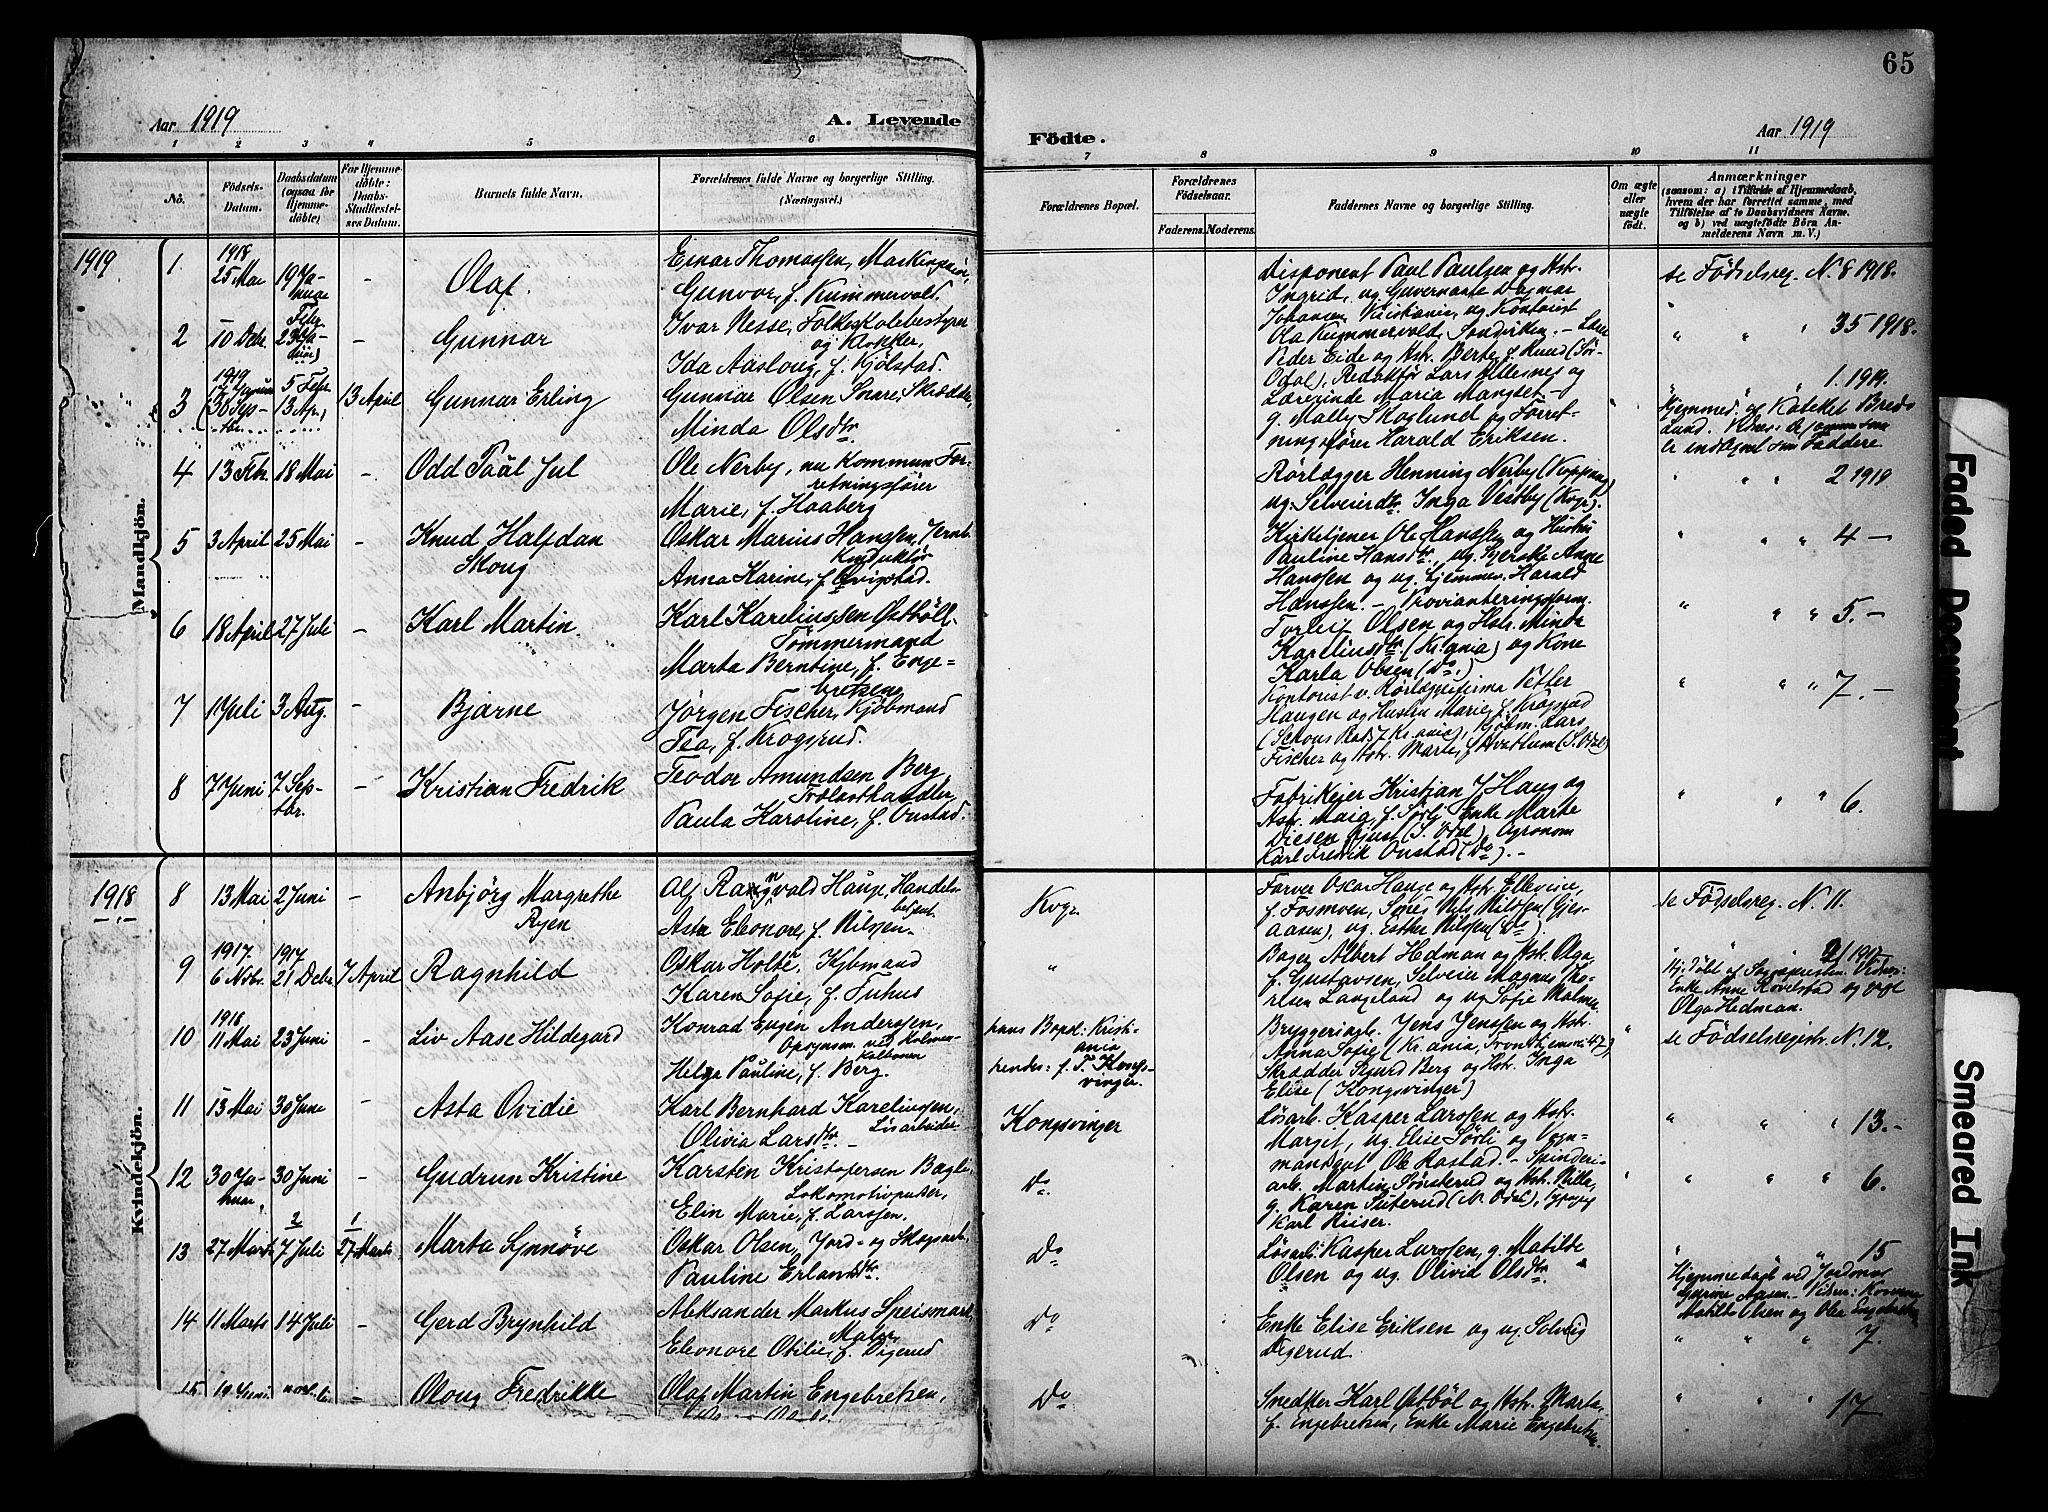 65
Aar 1919
A. Levende
Födte.
Aar 1919
1 2 3 4 5 6 7 8 9 10 11
No.
Födsels-
Datum.
Daabsdatum
(ogsaa for
Hjemme-
döbte)
For Hjemme-
döbte:
Daabs-
Stadfæstel-
ses Datum.
Barnets fulde Navn.
Forældrenes fulde Navne og borgerlige Stilling.
(Næringsvei.)
Forældrenes Bopæl.
Forældrenes
Födselsaar.
Faderens. Moderens.
Faddernes Navne og borgerlige Stilling.
Om ægte
eller
uægte
födt.
Anmærkninger
(saasom: a) i Tilfælde af Hjemmedaab,
hvem der har forrettet samme, med
Tilföielse af to Daabsvidners Navne.
og b) ved uægtefödte Börn An-
melderens Navn m. V.)
Mandkjön.
1919
1
1918
25 Mai
19 Ja-
nuar
-
Olaf.
Einar Thomassen,
Gunvor, f. Kummervold.
Disponent Paul Paulsen og Hstr.
Ingrid, ug. Guvernante Dagmar
Johansen, Kristiania, ug. Kontorist
Ola Kummervold, Sandviken. -
se Födselsreg. N. 8 1918.
2
10 Decbr.
Gunnar
Ivar Nesse, Folkeskolebestyrer
og Klokker,
Ida Aaslaug, f. Kjölstad.
Peder Eide og Hstr. Berte, f. Ruud (Sör-
Odal), Redaktör Lars
Lærerinde Maria Mangset -
" " " 35 1918.
3
1919
5 Febr.
13 Ap.)
13 April
Gunnar Erling
Gunnar Olsen Snare, Skrædder,
Minda Olsdtr
g. Mally Skoglund og Forret-
ningsförer Harald Eriksen.
" " 1. 1919.
Hjemmed. af Kateket
er indskrevet som Faddere
4
13 Febr.
18 Mai
-
Odd Paal Jul
Ole Nerby, nu Kommun. For-
retningsförer
Marie, f. Haaberg
Rörlægger Henning Nerby
ug. Inga Vestby (Kvgr).
" " " 2 1919
5
3 April
25 Mai
-
Knud Halfdan
Skoug
Oskar Marius Hanssen, Jernb.
Konduktör
Anna Karine, f. Qvigstad.
Kirketjener Ole Hanssen og Hustru
Pauline Hansdtr, ug. Bjerske Anne
Hanssen og ug. Hjemmev. Harald
Hanssen. -
" " " 4 -
6
18 April
27 Juli
-
Karl Martin.
Karl Kareliussen Östböll.
Tömmermand
Marta Berntine, f. Enge-
bretsen
Provianteringsform.
Torleif Olsen og Hstr. Minda
Kareliusdtr (Kr.ania) og Kone
Karla Olsen (Do.)
" " " 5. -
7
1 Juli
3 Aug.
-
Bjarne
Jörgen Fischer, Kjöbmand
Tea, f. Krogsrud.
Kontorist v. Rörlæggerfirma Petter
Haugen og Hustru Marie, f. Krogsrud
Fischer og Hstr. Marte,
" " " 7. -
8
7 Juni
7 Sep-
tbr.
-
Kristian Fredrik
Teodor Amundsen Berg
Trælasthandler,
Paula Karoline, f. Onstad.
Fabrikeier Kristian J Haug og
Hstr. Maia, f. Sörli, Enke Marte
Diesen (S. Odal), Agronom
Karl Fredrik Onstad (Do). -
" " " 6.
Kvindekjön.
1918
8
13 Mai
2 Juni
-
Anbjörg Margrethe
Ryen
Alf Rangvald Hauge, Handels-
betjent
Asta Eleonore, f. Nilssen
Kvgr
Farver Oskar Hauge og Hstr. Ellevine,
f. Fosmoen, Nils Nilssen (Gjes-
aasen), ug. Esther Nilssen (Do).
se Födselsreg. N. 11.
9
1917.
6 Nvbr.
1917
21 Decbr.
7 April
Ragnhild
Oskar Holte, Kjbmand
Karen Sofie, f. Fuhus
"
Bager Albert Hedman og Hstr. Olga,
f. Gustavsen, Selveier Magnus
Langeland og ug. Sofie Malme
21 1917
Hj. döbt af Sogneprästen.
Enke Anne og
Olga Hedman.
10
1918
11 Mai
23 Juni
-
Liv Aase Hildegard
Konrad Eugen Anderssen,
Opsynsm. ved Holmen-
kolbanen
Helga Pauline, f. Berg.
hans Bopæl: Kristi-
ania
hendes: f. T. Kongs-
vinger.
Bryggeriarb. Jens Jenssen og Hstr.
Anna Sofie (Kr.ania, 47)
Skrædder Sigurd Berg og Hstr. Inga
Elise (Kongsvinger)
"
se Födselsregistr. N. 12.
11
15 Mai
30 June
-
Asta Ovidie
Karl Bernhard Kareliussen,
Lösarbeider
Olivia Larsdtr. -
Kongsvinger
Lösarb. Kasper Larssen og Hstr.
Margit, ug. Elie Sörli og Vogn-
mand Ole Rastad. -
" " " 13. -
12
30 Ja-
nuar.
30 Juni
-
Gudrun Kristine
Karsten Kristofersen Bagli,
Lokomotivpusser,
Elin Marie, f. Larssen.
Do.
Spinderi-
arb. Martin Sörsterud og Hstr. Milla,
g. Karen Suterud (N. Odal),
Karl Riiser.
" " " 6.
13
27 Marts.
2
7 Juli
1
27 Marts
Marta Synnöve
Oskar Olsen, Jord- og Skogsarb.
Pauline Erlandsdtr.
Do
Lösarb. Kasper Larssen, g. Matilde
Olsen og ug. Olivia Olsdtr.
" " " 15
Hjemmedöbt ved Jordmor
Matilde Olsen og
14
11 Marts
14 Juli
-
Gerd Brynhild
Aleksander Markus
Maler
Eleonore Otilie, f. Digerud
Do
Enke Elise Eriksen og ug. Solveig
Digerud.
" " " 7.
15
19 Juni
-
Oloug Fredrikke
Olaf Martin Engebretsen,
Do
Snedker Karl Östböl og Hstr. Marta,
f. Engebretsen, Enke Marie Engebretsen.
" " " 17
Faded Document
Smeared Ink